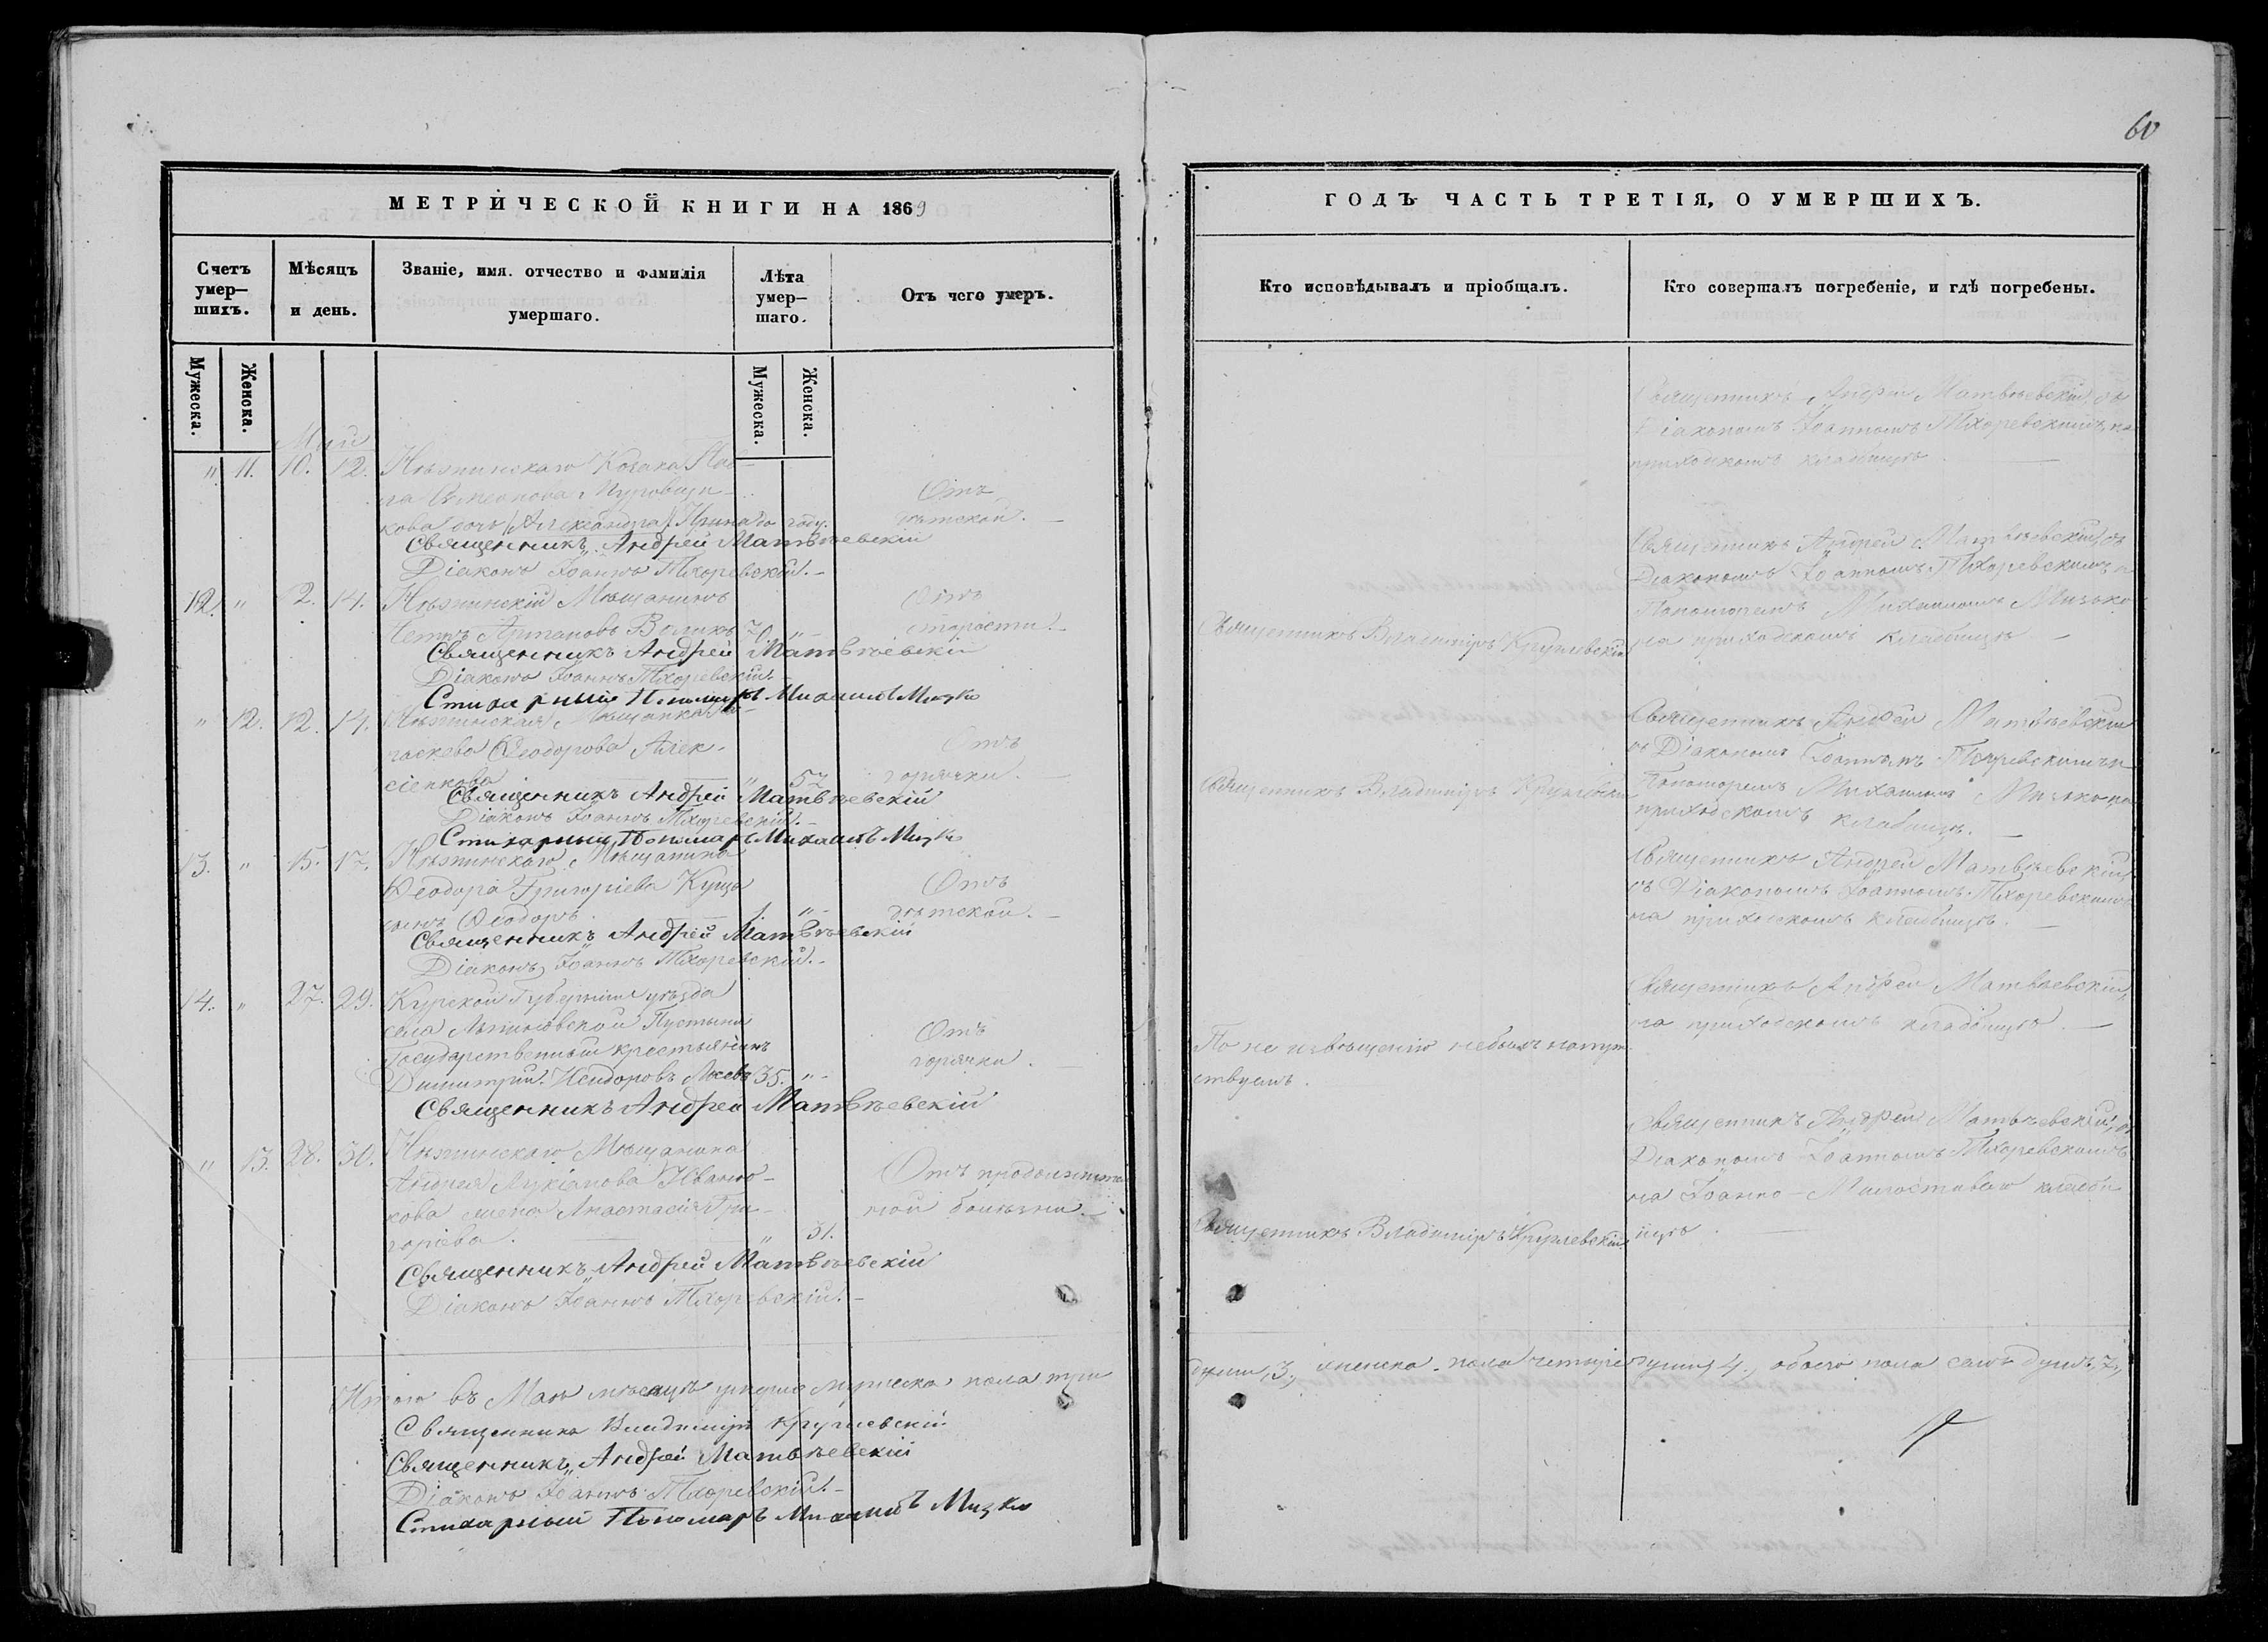 60
МЕТРИЧЕСКОЙ КНИГИ НА 1869
ГОДЪ ЧАСТЬ ТРЕТІЯ, О УМЕРШИХЪ.
Счетъ умер-
шихъ.
Мѣсяцъ
и день.
Званіе, имя. отчество и фамилія
умершаго.
Лѣта
умер-
шаго.
Отъ чего умеръ.
Кто исповѣдывалъ и пріобщалъ.
Кто совершалъ погребеніе, и гдѣ погребены.
Мужеска.
Женска.
Мужеска.
Женска.
Май
" 11. 10. 12. Нѣжинскаго Козака Пав-
ла
кова дочь Александра
Отъ
дѣтской.
Священникъ Андрей Матвѣевскій съ
Діакономъ Іоанномъ Тхоревскимъ, на
приходскомъ кладбищѣ
Священникъ Андрей Матвѣевскій
Діаконъ Іоаннъ Тхоревскій.
12. " 12. 14. Нѣжинскій Мѣщанинъ
70. "
Отъ
старости.
Священникъ Владиміръ Круплевскій
Священникъ Андрей Матвѣевскій, съ
Діакономъ Іоанномъ Тхоревскимъ и
Пономаремъ Михаиломъ Мизько
на приходскомъ кладбищѣ
Священникъ Андрей Матвѣевскій
Діаконъ Іоаннъ Тхоревскій.
Стихарный Пономарь Михаилъ Мизко
" 12. 12. 14. Нѣжинская Мѣщанка Па-
раскева Феодорова Алек-
сіенкова " 57
Отъ
горячки.
Священникъ Владиміръ
Священникъ Андрей Матвѣевскій
съ Діакономъ Іоанномъ Тхоревскимъ и
Пономаремъ Михаиломъ Мизько на
приходскомъ кладбищѣ.
Священникъ Андрей Матвѣевскій
Діаконъ Іоаннъ Тхоревскій.
Стихарный Пономарь Михаилъ Мизко
13. " 15. 17. Нѣжинскаго Мѣщанина
Феодора Григоріева Куща
сынъ Феодоръ. 1. "
Отъ
дѣтской.
Священникъ Андрей Матвѣевскій,
съ Діакономъ Іоанномъ Тхоревскимъ
на приходскомъ кладбищѣ.
Священникъ Андрей Матвѣевскій
Діаконъ Іоаннъ Тхоревскій.
14. " 27. 29. Курской Губерніи уѣзда
села Пустыни
Государственный крестьянинъ
Димитрій 35. "
Отъ
горячки.
По не извѣщенію небылъ напут-
ствуемъ.
Священникъ Андрей Матвѣевскій,
на приходскомъ кладбищѣ.
Священникъ Андрей Матвѣевскій
" 13. 28. 30. Нѣжинскаго Мѣщанина
Андрея Лукіанова Иваню-
кова жена Анастасія Гри-
горіева. " 31.
Отъ продолжитель
ной болѣзни.
Священникъ Владиміръ Круплевскій
Священникъ Андрей Матвѣевскій, съ
Діакономъ Іоанномъ Тхоревскимъ
на Іоанно-Милостиваго кладби-
щѣ.
Священникъ Андрей Матвѣевскій
Діаконъ Іоаннъ Тхоревскій.
Итого въ Маѣ мѣсяцѣ умерло мужеска пола три
души, 3, женска пола четыре души, 4, обоего пола семь душъ, 7,
Священникъ Владиміръ Круплевскій
Священникъ Андрей Матвѣевскій
Діаконъ Іоаннъ Тхоревскій.
Стихарный Пономарь Михаилъ Мизко